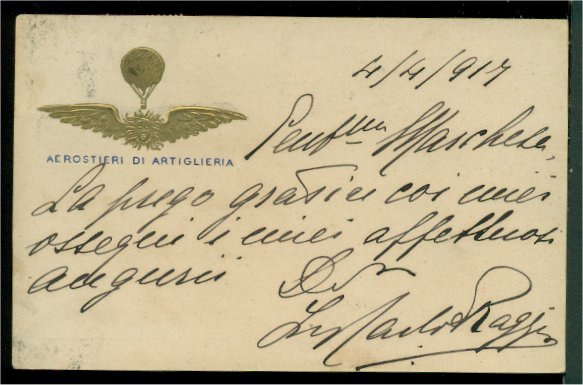 4/4/917
AEROSTIERI DI ARTIGLIERIA
Gent.ma Marchesa,
La prego gradire coi miei
ossequi i miei affettuosi
auguri
Raggi